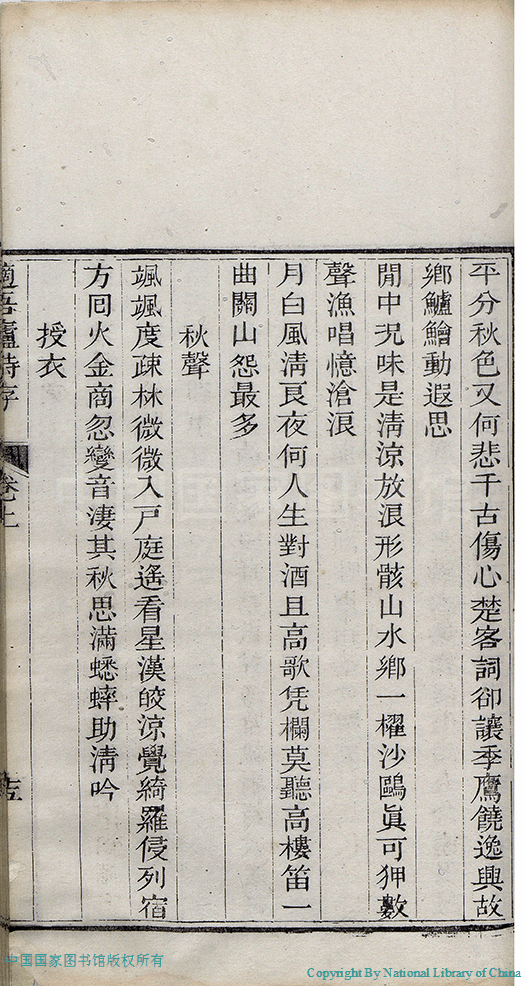 平分秋色又何悲千古傷心楚客詞卻讓季鷹饒逸興故
鄉鱸鱠動遐思
閒中況味是清涼放浪形骸山水鄉一櫂沙鷗眞可狎數
聲漁唱憶滄浪
月白風清良夜何人生對酒且高歌凭欄莫聽高樓笛一
曲關山怨最多
秋聲
颯颯度疎林微微入戸庭遙看星漢皎涼覺綺羅侵列宿
方囘火金商忽變音淒其秋思滿蟋蟀助清吟
授衣
適吾廬詩存
卷七
中国国家图书馆版权所有
Copyright By National Library of China